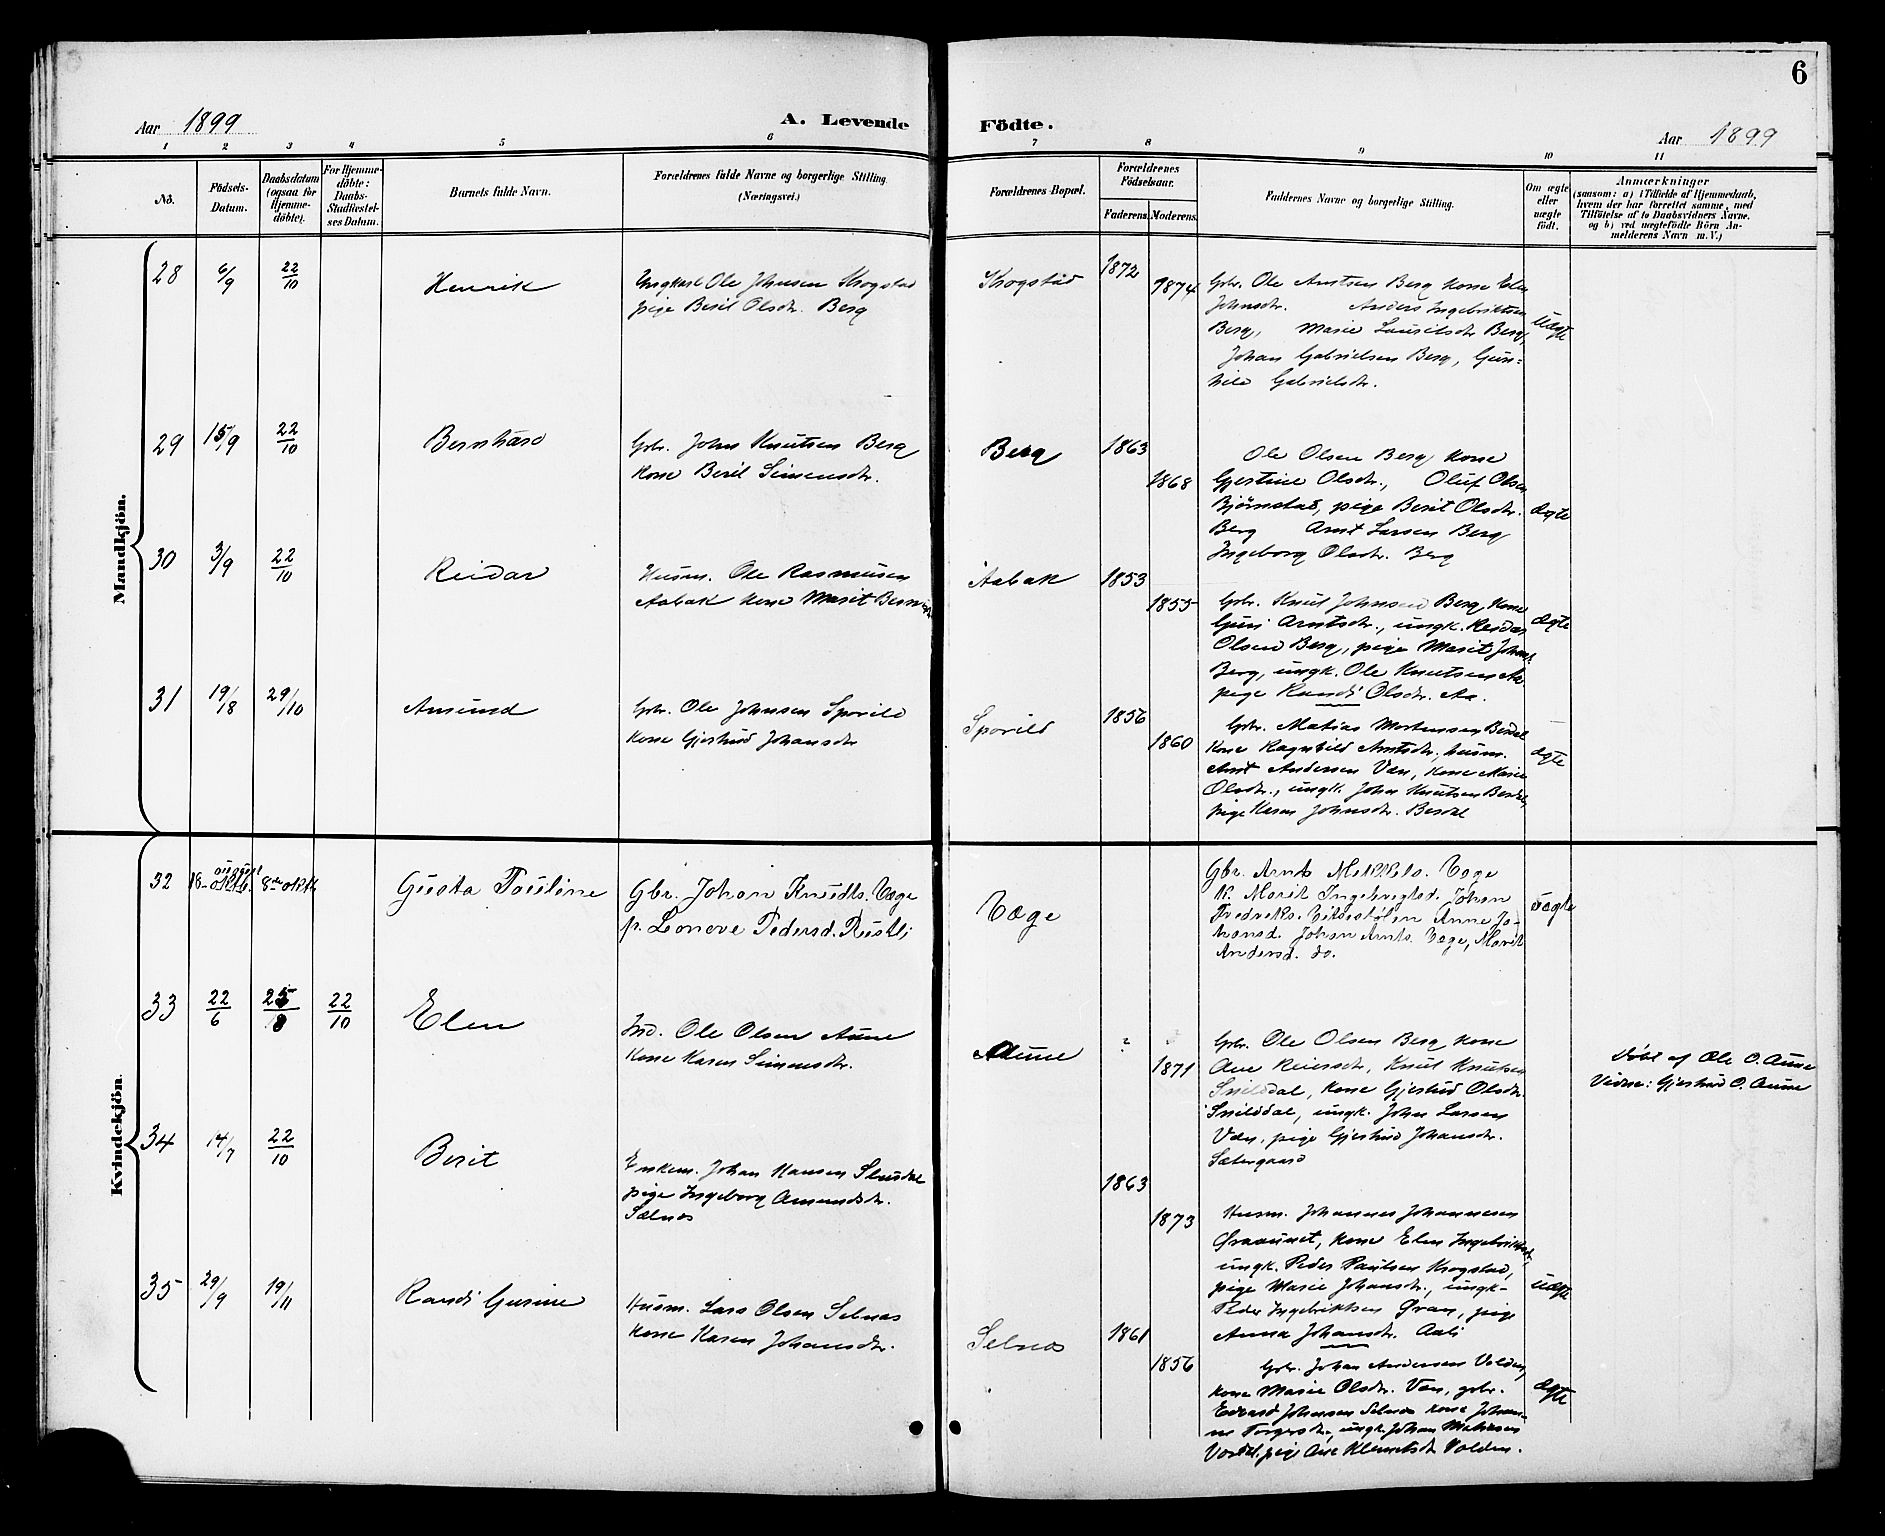 6
Aar 1899
A. Levende
Födte.
Aar 1899
1 2 3 4 5 6 7 8 9 10 11
No.
Födsels-
Datum.
Daabsdatum
(ogsaa for
Hjemme-
döbte).
For Hjemme-
döbte:
Daabs-
Stadfæstel-
ses Datum.
Barnets fulde Navn.
Forældrenes fulde Navne og borgerlige Stilling
(Næringsvei.)
Forældrenes Bopæl.
Forældrenes
Födselsaar.
Faderens. Moderens.
Faddernes Navne og borgerlige Stilling.
Om ægte
eller
uægte
födt.
Anmærkninger
(saasom: a) i Tilfælde af Hjemmedaab,
hvem der har forrettet samme, med
Tilföielse af to Daabsvidners Navne.
og b) ved uægtefödte Börn An-
melderens Navn m. V.)
Mandkjön.
28 6/9 22/10 Henrik
Ungkarl Ole Johnsen Krogstad
pige Berit Olsdtr. Berg
Krogstad 1872
1874
Gbr. Ole Arntsen Berg kone Elen
Johnsdr. Anders Ingebriktsen
Berg, Marie Lauritsdtr Berg,
Johan Gabrielsen Berg, Gun-
hild Gabrielsdtr.
Uægte
29 15/9 22/10 Bernhard
Gbr. John Knutsen Berg
kone Berit Simensdtr.
Berg 1863
1868
Ole Olsen Berg kone
Gjertine Olsdtr., Oluf Olsen
Bjørnstad, pige Berit Olsdtr.
Berg Arnt Larsen Berg
Ingeborg Olsdtr. Berg
ægte
30 3/9 22/10 Reidar
Husm. Ole Rasmusen
Aabak kone Marit
Aabak 1853
1855
Gbr. Knut Johnsen Berg, kone
Guri Arntsdtr., ungk. Reidar
Olsen Berg, pige Marit Johns.
Berg, ungk. Ole Knutsen Aa
pige Randi Olsdtr. Aa.
ægte
31 19/8 29/10 Amund
Gbr. Ole Johnsen Sporild
kone Gjertrud Johansdtr
Sporild 1856
1860
Gbr. Matias Mortensen Berdal
kone Ragnhild Arntsdtr., husm.
Arnt Andersen Væn, kone Marie
Olsdtr., ungk. John Knutsen Berdal,
pige Karen Johnsdtr. Berdal
ægte
Kvindekjön.
32 18 august 8de oktb. Gusta Pauline
Gbr. Johan Knudts. Væge
p. Leonove Pedersd. Rustli
Væge
Gbr. Arnt Mekkels. Væge
k. Marit Ingebregtsd. Johan
Fredreks. Anne Jo-
hansd. Johan Arnts. Væge, Marit
Andersd. do.
uægte
33 22/6 25/8 22/10 Elen
Ind. Ole Olsen Aune
kone Karen Simensdtr.
Aune ?
1871
Gbr. Ole Olsen Berg kone
Ane Reiersdtr, Knut Knutsen
Snilddal, kone Gjertrud Olsdtr.
Snilddal, ungk. John Larsen
Væn, pige Gjertrud Johansdtr.
Sætergaard
Døbt af Ole O. Aune
Vidne: Gjertrud O. Aune
34 14/7 22/10 Berit
Enkem. Johan Hansen
pige Ingeborg Amundsdtr.
Sælnes
1863
1873
Husm. Johannes Johannesen
kone Elen
ungk. Peder Paulsen Krogstad,
pige Marie Johansdtr., ungk.
Peder Ingebriktsen Øran, pige
Anna Johansdtr. Aali
uægte
35 29/9 19/11 Randi Gurine
Husm. Lars Olsen Selnæs
kone Karen Johansdtr.
Selnæs 1861
1856
Gbr. Johan Andersen Volden,
kone Marie Olsdtr. Væn, gbr.
Edvard Johnsen Selnæs kone Johan-
ne Torgersdtr, ungk. Johan
pige Ane Klemetsdtr Volden.
ægte